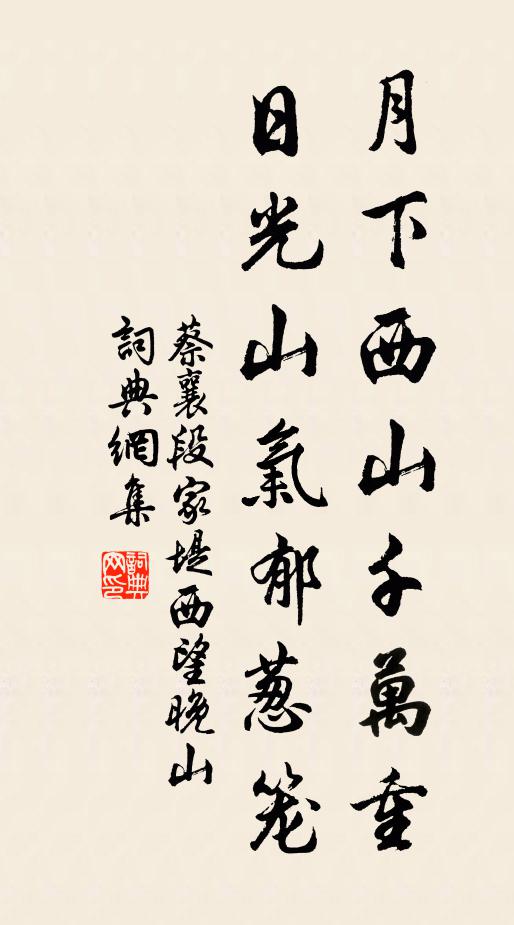 月下西山千萬重
日光山氣郁葱笼
蔡襄段家堤西望晚山
詞典網集
詞典网印